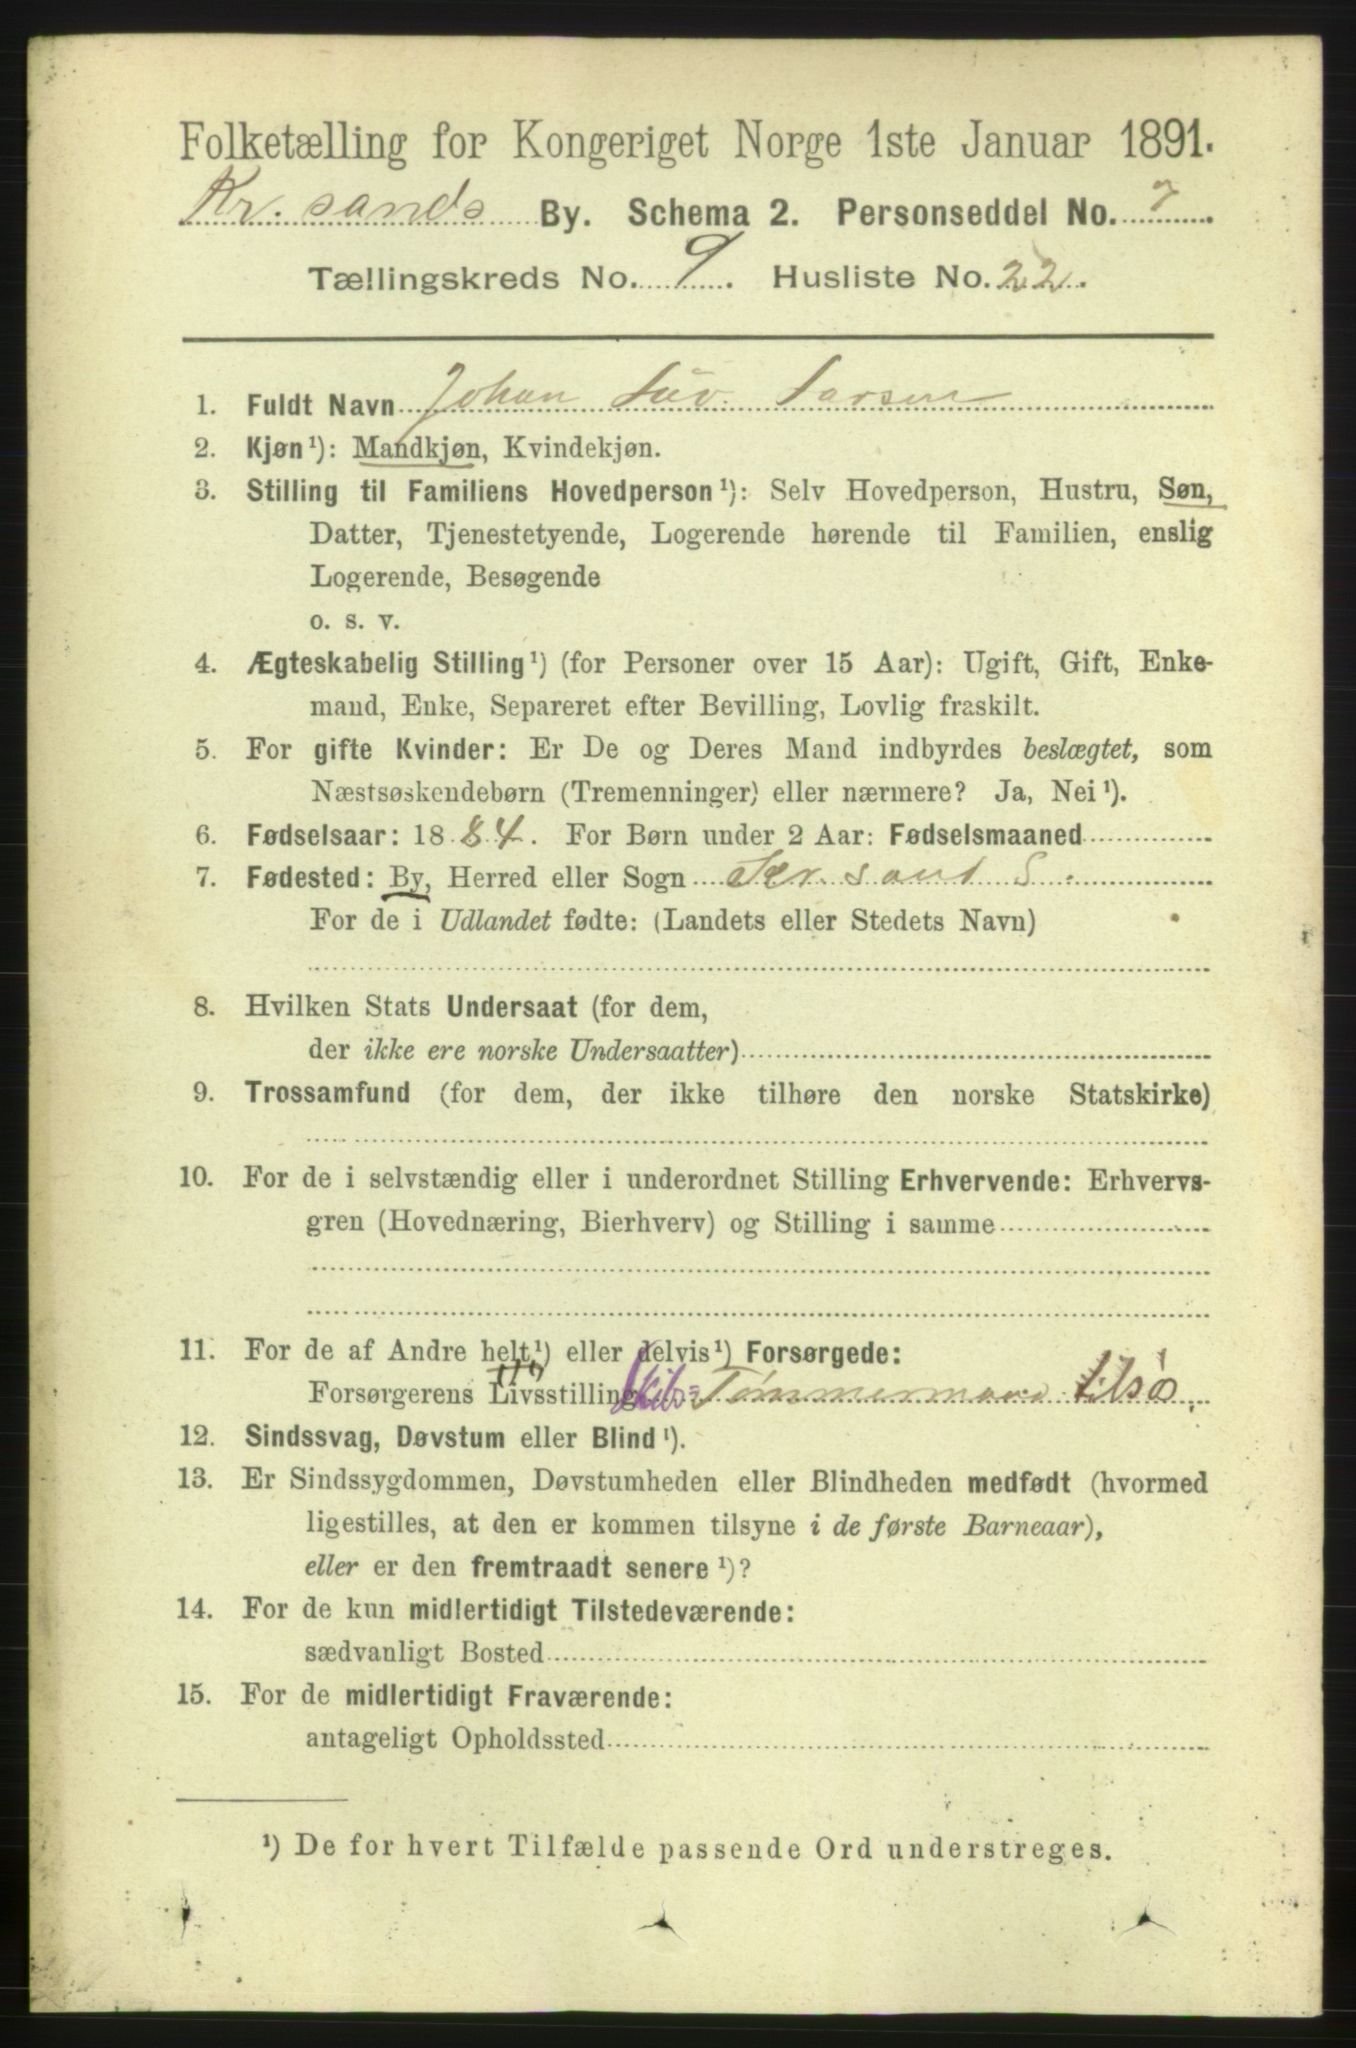 Folketælling for Kongeriget Norge 1ste Januar 1891.
Kr. sands By. Schema 2. Personseddel No. 7
Tællingskreds No. 9. Husliste No. 22.
1. Fuldt Navn Johan Larsen
2. Kjøn¹): Mandkjøn, Kvindekjøn.
3. Stilling til Familiens Hovedperson¹): Selv Hovedperson, Hustru, Søn,
Datter, Tjenestetyende, Logerende hørende til Familien, enslig
Logerende, Besøgende
o. s. v.
4. Ægteskabelig Stilling¹) (for Personer over 15 Aar): Ugift, Gift, Enke-
mand, Enke, Separeret efter Bevilling, Lovlig fraskilt.
5. For gifte Kvinder: Er De og Deres Mand indbyrdes beslægtet, som
Næstsøskendebørn (Tremenninger) eller nærmere? Ja, Nei¹).
6. Fødselsaar: 1884. For Børn under 2 Aar: Fødselsmaaned
7. Fødested: By, Herred eller Sogn Kr. sand S.
For de i Udlandet fødte: (Landets eller Stedets Navn)
8. Hvilken Stats Undersaat (for dem,
der ikke ere norske Undersaatter)
9. Trossamfund (for dem, der ikke tilhøre den norske Statskirke)
10. For de i selvstændig eller i underordnet Stilling Erhvervende: Erhvervs-
gren (Hovednæring, Bierhverv) og Stilling i samme
11. For de af Andre helt¹) eller delvis¹) Forsørgede:
Forsørgerens Livsstilling Skibs= Tømmermand tilsøs.
12. Sindssvag, Døvstum eller Blind¹).
13. Er Sindssygdommen, Døvstumheden eller Blindheden medfødt (hvormed
ligestilles, at den er kommen tilsyne i de første Barneaar),
eller er den fremtraadt senere¹)?
14. For de kun midlertidigt Tilstedeværende:
sædvanligt Bosted
15. For de midlertidigt Fraværende:
antageligt Opholdssted
¹) De for hvert Tilfælde passende Ord understreges.